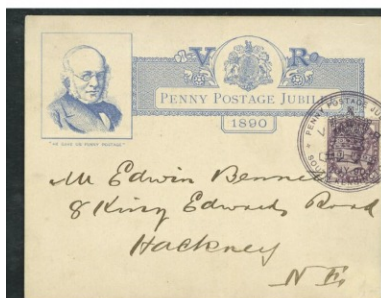 V R
PENNY POSTAGE JUBIL
1890
"HE GAVE US PENNY POSTAGE"
PENNY POSTAGE JU
SOU
Mr Edwin Benne
8 King Edwards Road
Hackney
N.E.